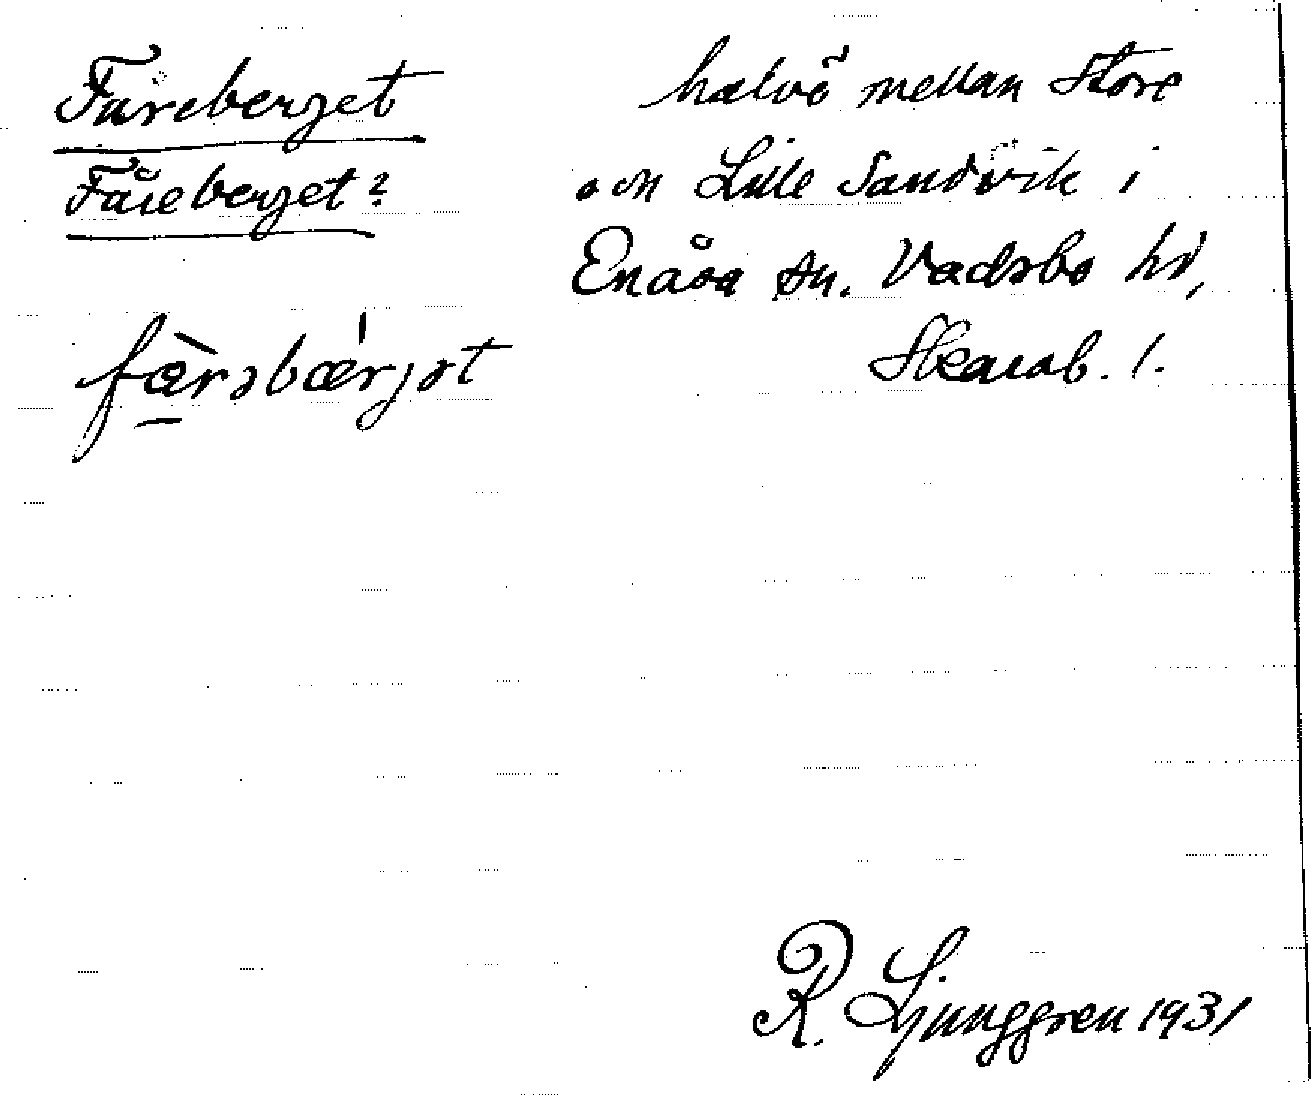 Fareberget
Fåreberget?
færəbærjət
halvö mellan Store
och Lille Sandvik i
Enåsa sn. Vadsbo hd,
Skarab. l.
R. Ljunggren 1931